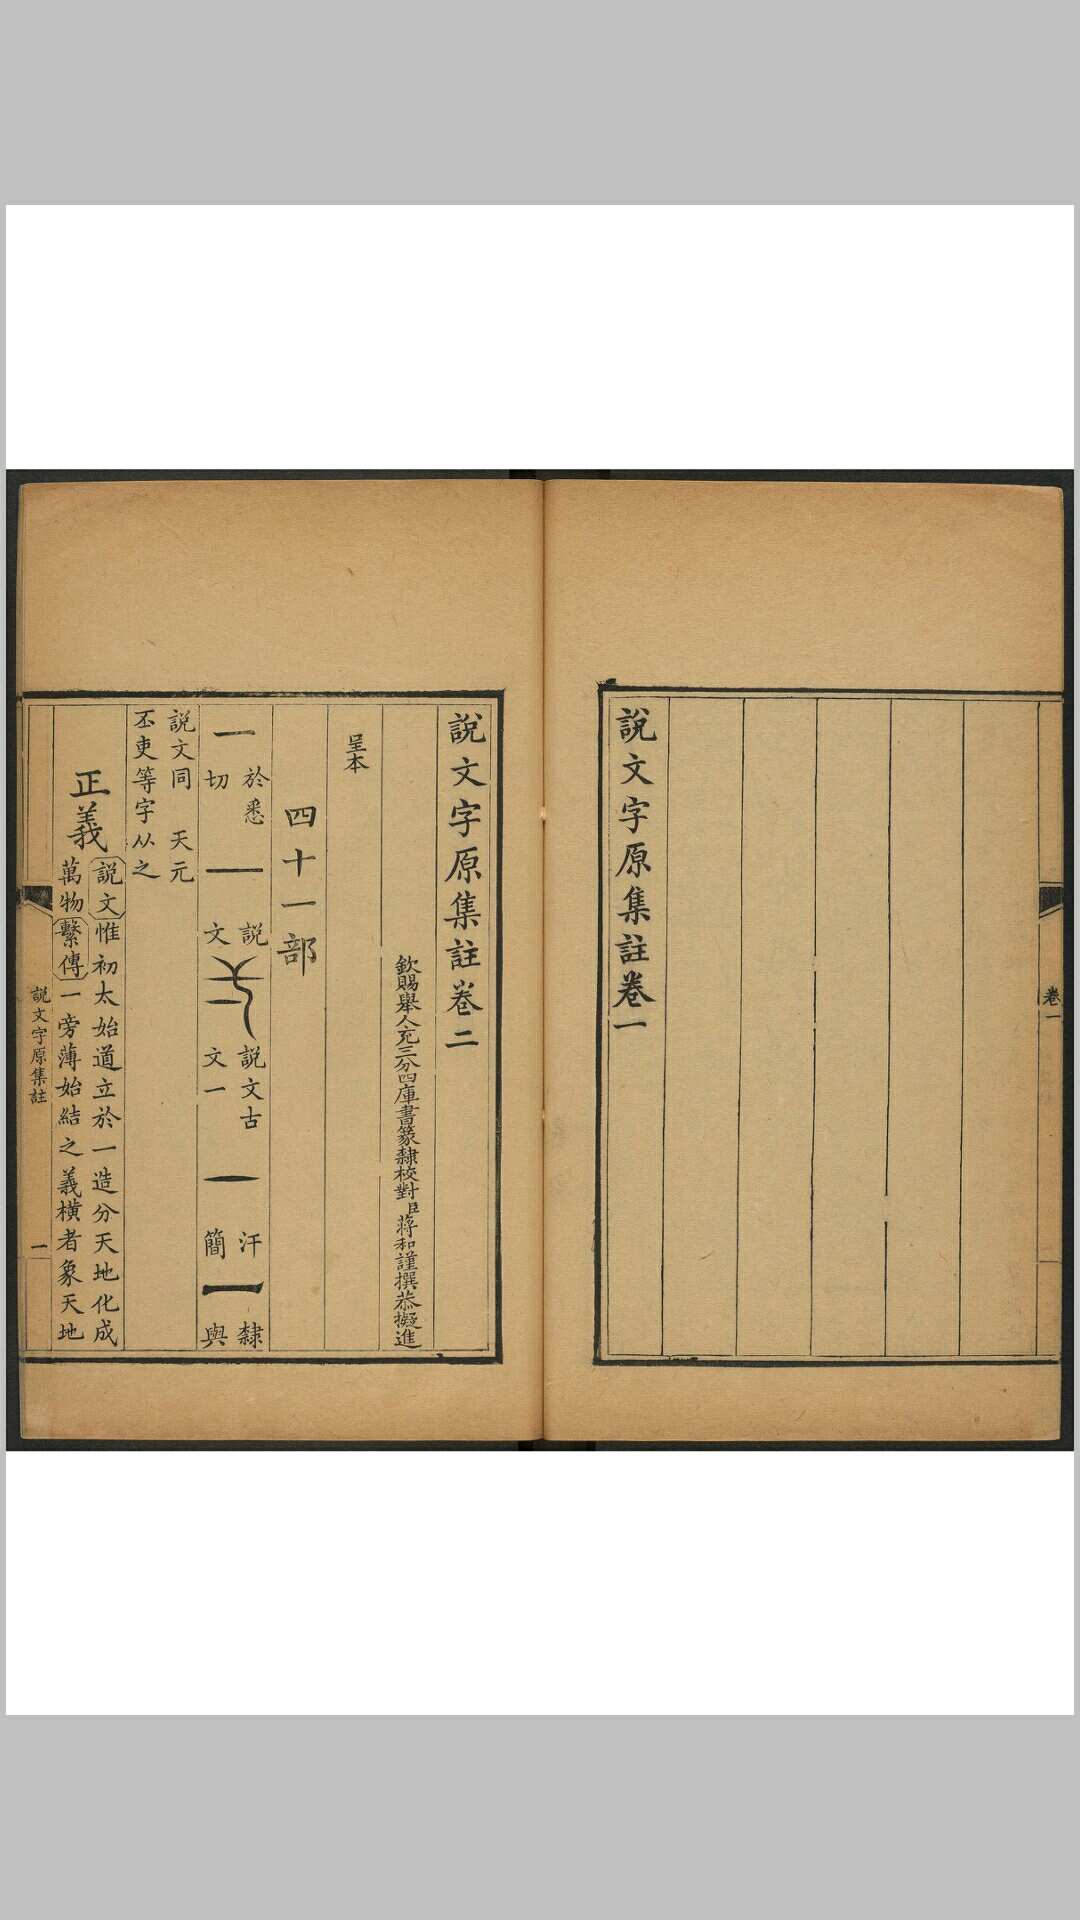 卷一
說文字原集註卷一
說文字原集註卷二
欽賜舉人充三分四庫書篆隸校對臣蔣和謹撰恭擬進
呈本
四十一部
一 於悉切 一 說文 弌 說文古文一 一 汗簡 一 隸與
說文同 天元
丕吏等字从之
正義 說文 惟初太始道立於一造分天地化成
萬物 繫傳 一旁薄始結之義橫者象天地
說文字原集註
一